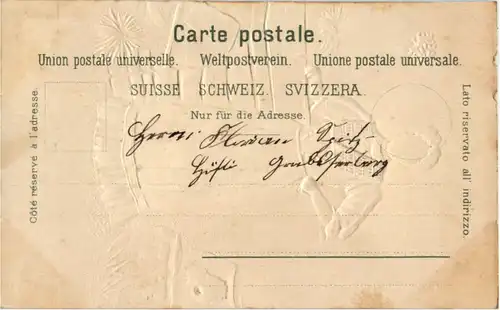 Carte postale.
Union postale universelle. Weltpostverein. Unione postale universale.
SUISSE SCHWEIZ. SVIZZERA.
Nur für die Adresse.
Côté réservé à l'adresse.
Lato riservato all' indirizzo.
Herrn Florian